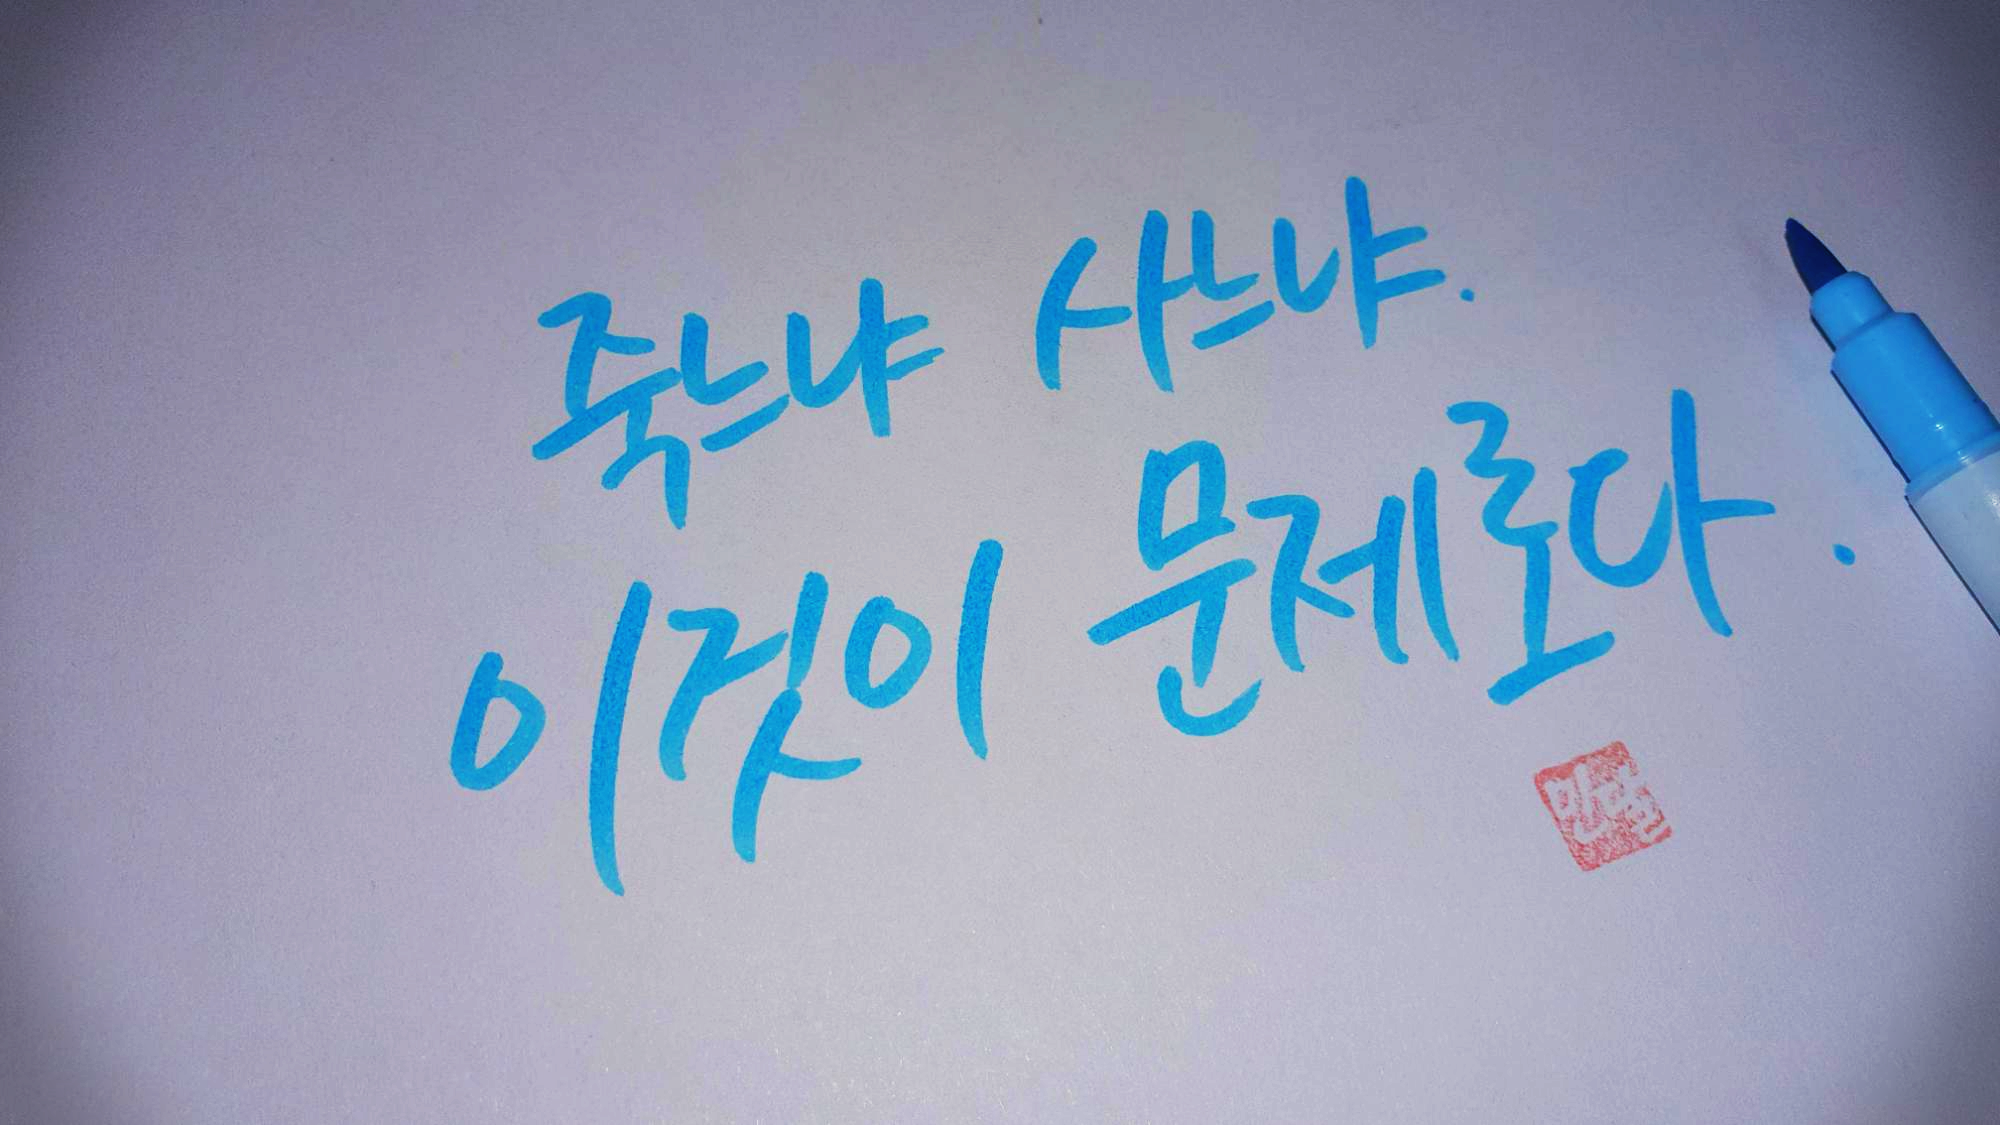 죽느냐 사느냐.
이것이 문제로다.